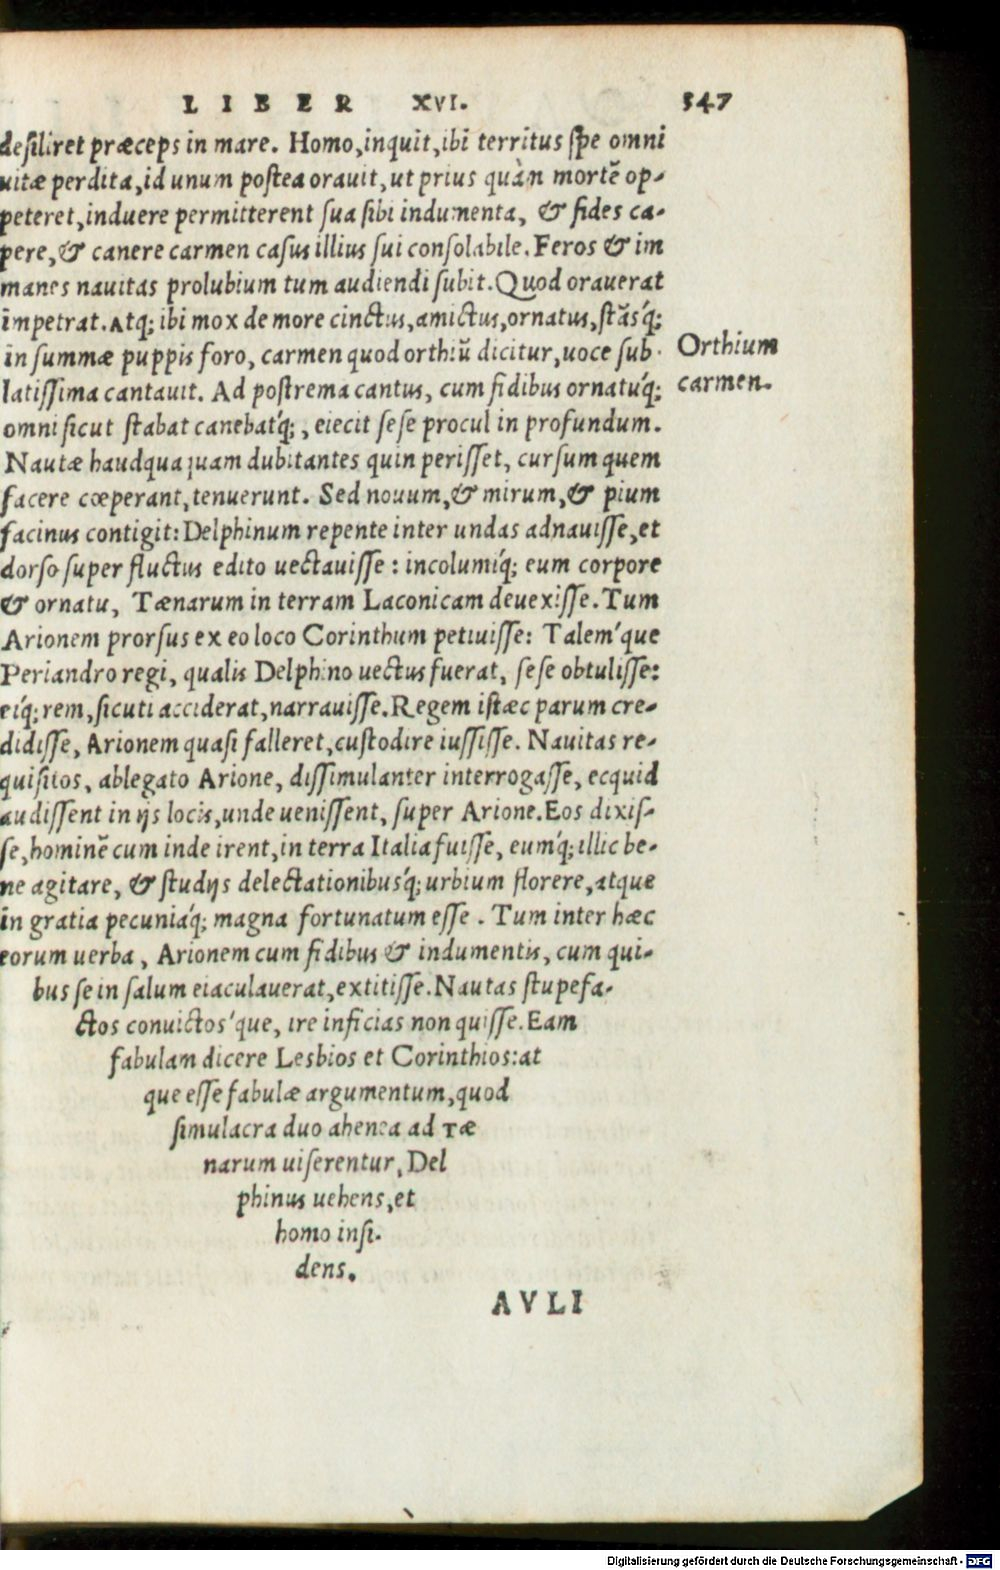 LIBER XVI. 547
desiliret præceps in mare. Homo, inquit, ibi territus spe omni
uitæ perdita, id unum postea orauit, ut prius quàm mortẽ op-
peteret, induere permitterent sua sibi indumenta, & fides ca-
pere, & canere carmen casus illius sui consolabile. Feros & im
manes nauitas prolubium tum audiendi subit. Quod orauerat
impetrat. Atq; ibi mox de more cinctus, amictus, ornatus, stãsq́;
in summæ puppis foro, carmen quod orthiũ dicitur, uoce sub-
latissima cantauit. Ad postrema cantus, cum fidibus ornatuq́;
omni sicut stabat canebatq́;, eiecit sese procul in profundum.
Nautæ haudquaquam dubitantes quin perisset, cursum quem
facere cœperant, tenuerunt. Sed nouum, & mirum, & pium
facinus contigit: Delphinum repente inter undas adnauisse, et
dorso super fluctus edito uectauisse: incolumiq́; eum corpore
& ornatu, Tænarum in terram Laconicam deuexisse. Tum
Arionem prorsus ex eo loco Corinthum petiuisse: Talem'que
Periandro regi, qualis Delphino uectus fuerat, sese obtulisse:
eiq́; rem, sicuti acciderat, narrauisse. Regem istæc parum cre-
didisse, Arionem quasi falleret, custodire iussisse. Nauitas re-
quisitos, ablegato Arione, dissimulanter interrogasse, ecquid
audissent in ijs locis, unde uenissent, super Arione. Eos dixis-
se, hominẽ cum inde irent, in terra Italia fuisse, eumq́; illic be-
ne agitare, & studijs delectationibusq́; urbium florere, atque
in gratia pecuniaq́; magna fortunatum esse. Tum inter hæc
eorum uerba, Arionem cum fidibus & indumentis, cum qui-
bus se in salum eiaculauerat, extitisse. Nautas stupefa-
ctos conuictos'que, ire inficias non quisse. Eam
fabulam dicere Lesbios et Corinthios: at
que esse fabulæ argumentum, quod
simulacra duo ahenea ad Tæ
narum uiserentur, Del
phinus uehens, et
homo insi-
dens.
AVLI
Orthium
carmen.
Digitalisierung gefördert durch die Deutsche Forschungsgemeinschaft - DFG